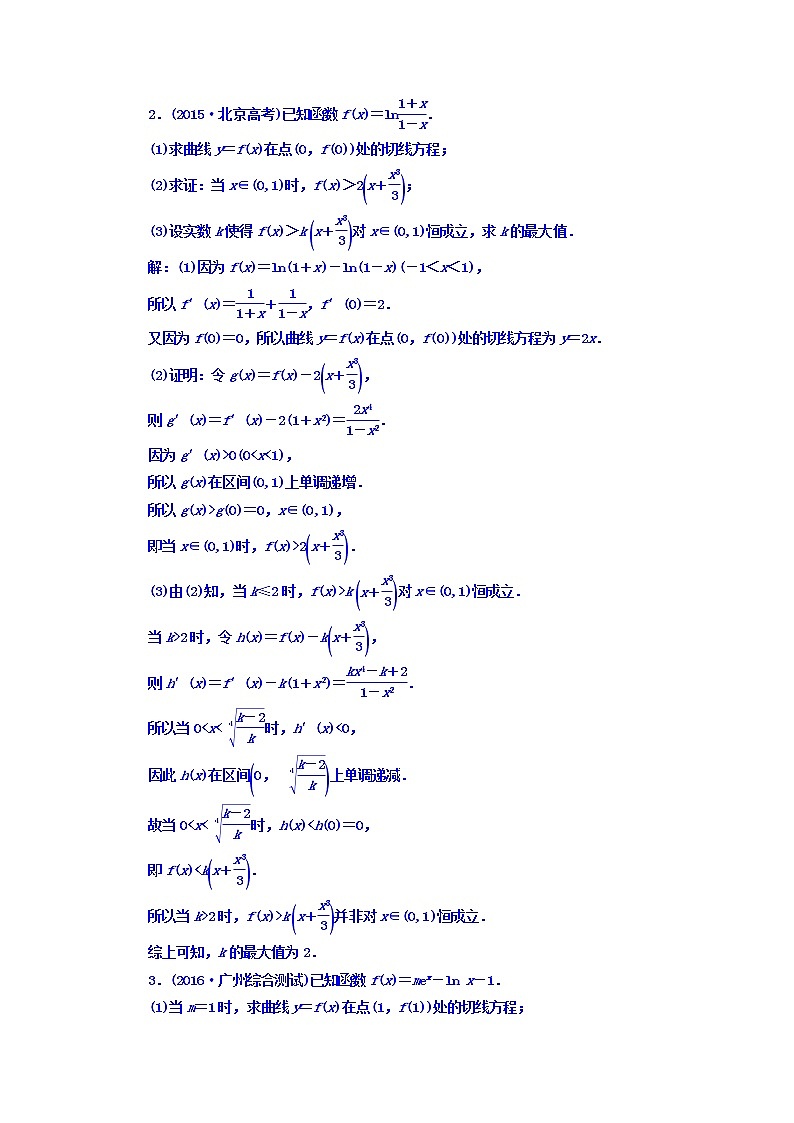 2.(2015·北京高考)已知函数 f(x)=ln\frac{1+x}{1-x}.
(1)求曲线 y=f(x)在点(0,f(0))处的切线方程;
(2)求证:当 x∈(0,1)时,f(x)>2(x+\frac{x³}{3});
(3)设实数 k 使得 f(x)>k(x+\frac{x³}{3})对 x∈(0,1)恒成立,求 k 的最大值.
解:(1)因为 f(x)=ln(1+x)-ln(1-x)(-1<x<1),
所以 f′(x)=\frac{1}{1+x}+\frac{1}{1-x},f′(0)=2.
又因为 f(0)=0,所以曲线 y=f(x)在点(0,f(0))处的切线方程为 y=2x.
(2)证明:令 g(x)=f(x)-2(x+\frac{x³}{3}),
则 g′(x)=f′(x)-2(1+x²)=\frac{2x⁴}{1-x²}.
因为 g′(x)>0(0<x<1),
所以 g(x)在区间(0,1)上单调递增.
所以 g(x)>g(0)=0,x∈(0,1),
即当 x∈(0,1)时,f(x)>2(x+\frac{x³}{3}).
(3)由(2)知,当 k≤2 时,f(x)>k(x+\frac{x³}{3})对 x∈(0,1)恒成立.
当 k>2 时,令 h(x)=f(x)-k(x+\frac{x³}{3}),
则 h′(x)=f′(x)-k(1+x²)=\frac{kx⁴-k+2}{1-x²}.
所以当 0<x<\sqrt[4]{\frac{k-2}{k}}时,h′(x)<0,
因此 h(x)在区间(0, \sqrt[4]{\frac{k-2}{k}})上单调递减.
故当 0<x<\sqrt[4]{\frac{k-2}{k}}时,h(x)<h(0)=0,
即 f(x)<k(x+\frac{x³}{3}).
所以当 k>2 时,f(x)>k(x+\frac{x³}{3})并非对 x∈(0,1)恒成立.
综上可知,k 的最大值为 2.
3.(2016·广州综合测试)已知函数 f(x)=meˣ-ln x-1.
(1)当 m=1 时,求曲线 y=f(x)在点(1,f(1))处的切线方程;